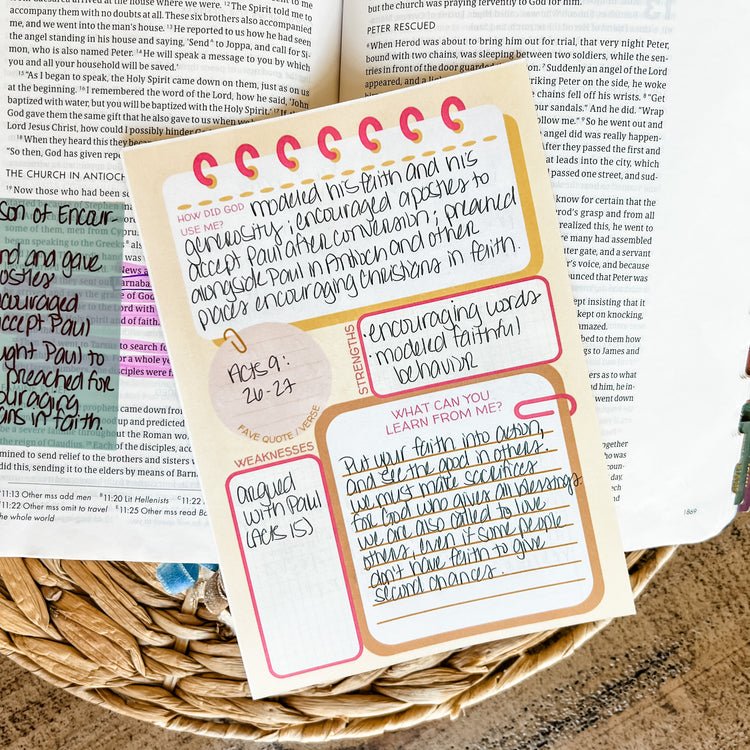 arrived at the house where we were. 12 The Spirit told me to
accompany them with no doubts at all. These six brothers also accompanied
me, and we went into the man's house. 13 He reported to us how he had seen
the angel standing in his house and saying, 'Send to Joppa, and call for Si-
mon, who is also named Peter. 14 He will speak a message to you by which
you and all your household will be saved.'
15 "As I began to speak, the Holy Spirit came down on them, just as on us
at the beginning. 16 I remembered the word of the Lord, how he said, 'John
baptized with water, but you will be baptized with the Holy
God gave them the same gift that he also gave to us when
Lord Jesus Christ, how could I possibly hinder
18 When they heard this they
"So then, God has given
THE CHURCH IN ANTIOCH
19 Now those who had been
son of Encour-
and gave
encouraged
accept Paul
Paul to
preached for
in faith.
to search
for a whole
prophets came down from
up and predicted
throughout the Roman
the reign of Claudius. 29 Each of the disciples,
mined to send relief to the brothers and sisters
did this, sending it to the elders by means of
11:13 Other mss add men 11:20 Lit Hellenists
11:22 Other mss omit to travel 11:25 Other mss read
the whole world
but the church was praying fervently to God for him.
PETER RESCUED
6 When Herod was about to bring him out for trial, that very night Peter,
bound with two chains, was sleeping between two soldiers, while the sen-
tries in front of the door guarded 7 Suddenly an angel of the Lord
appeared, and a striking Peter on the side, he woke
chains fell off his wrists. 8 "Get
sandals." And he did. "Wrap
follow me." 9 So he went out and
angel did was really happen-
After they passed the first and
that leads into the city, which
passed one street, and sud-
know for certain that the
Herod's grasp and from all
realized this, he went to
many had assembled
gate, and a servant
voice, and because
announced that Peter was
kept insisting that it
kept on knocking,
amazed.
them how
things to James and
1869
HOW DID GOD
USE ME?
modeled his faith and his
generosity; encouraged apostles to
accept Paul after conversion; preached
alongside Paul in Antioch and other
places encouraging Christians in faith.
Acts 9:
26-27
FAVE QUOTE/VERSE
STRENGTHS
• encouraging words
• modeled faithful
behavior
WEAKNESSES
argued
with Paul
(Acts 15)
WHAT CAN YOU
LEARN FROM ME?
Put your faith into action,
and see the good in others.
We must make sacrifices
for God who gives all blessings
we are also called to love
others, even if some people
don't have faith to give
second chances.